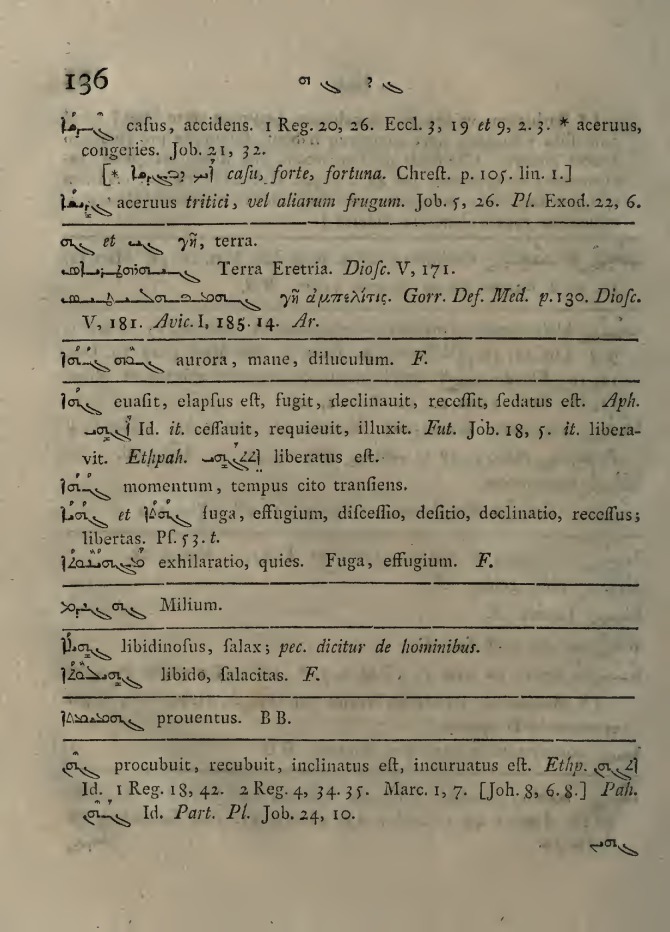 136 ܓܕ ܓܗ
ܓܕܫܐ caſus, accidens. 1 Reg. 20, 26. Eccl. 3, 19 et 9, 2. 3. * aceruus,
congeries. Job. 21, 32.
[* caſu, forte, fortuna. Chreſt. p. 105. lin. 1.]
ܓܕܝܫܐ aceruus tritici, vel aliarum frugum. Job. 5, 26. Pl. Exod. 22, 6.
ܓܗ et γῆ, terra.
Terra Eretria. Dioſc. V, 171.
γῆ ἀμπελίτις. Gorr. Def. Med. p. 130. Dioſc.
V, 181. Avic. I, 185. 14. Ar.
aurora, mane, diluculum. F.
ܓܗܐ euaſit, elapſus eſt, fugit, declinauit, receſſit, ſedatus eſt. Aph.
ܐܓܗܝ Id. it. ceſſauit, requieuit, illuxit. Fut. Job. 18, 5. it. libera-
vit. Ethpah. ܐܬܓܗܝ liberatus eſt.
momentum, tempus cito tranſiens.
et fuga, effugium, diſceſſio, deſitio, declinatio, receſſus;
libertas. Pſ. 53. t.
exhilaratio, quies. Fuga, effugium. F.
Milium.
libidinoſus, ſalax; pec. dicitur de hominibus.
libido, ſalacitas. F.
prouentus. B B.
ܓܗܢ procubuit, recubuit, inclinatus eſt, incuruatus eſt. Ethp. ܐܬܓܗܢ
Id. 1 Reg. 18, 42. 2 Reg. 4, 34. 35. Marc. 1, 7. [Joh. 8, 6. 8.] Pah.
ܓܗܢ Id. Part. Pl. Job. 24, 10.